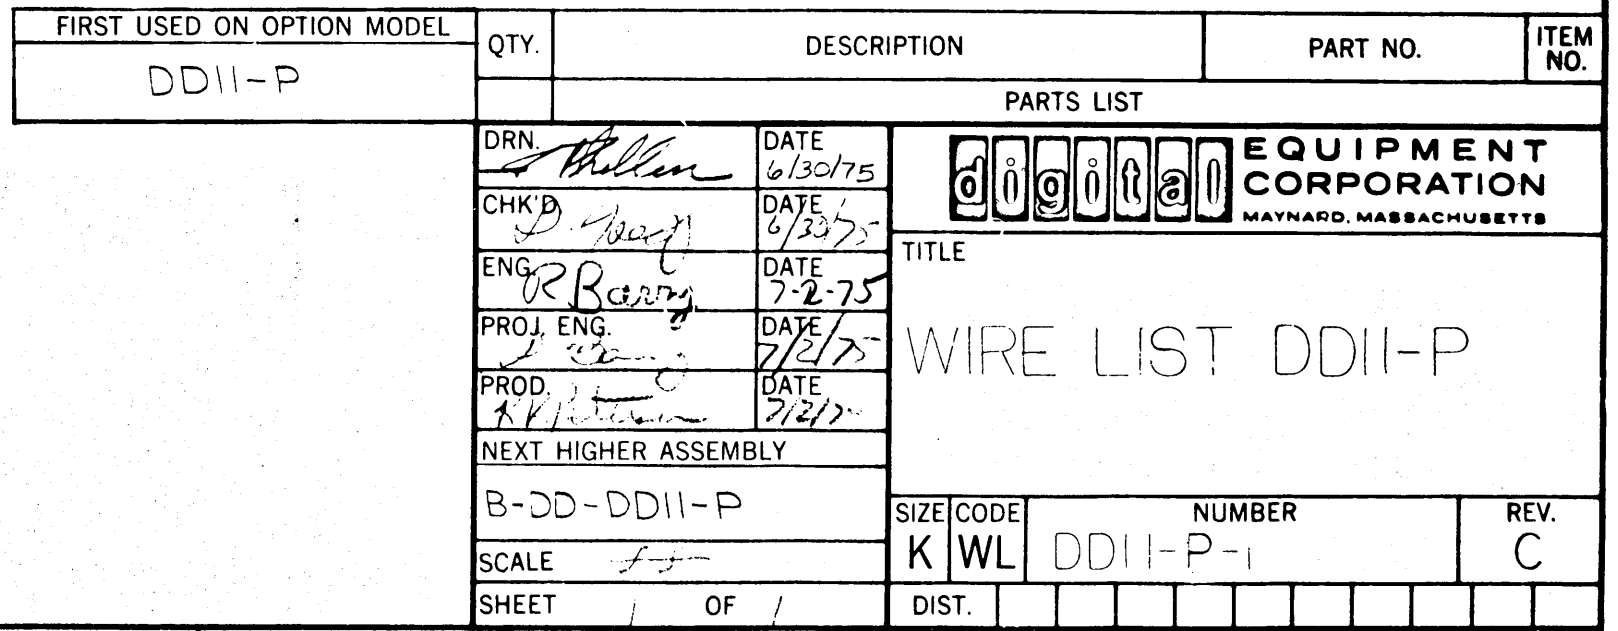 FIRST USED ON OPTION MODEL
DD11-P
QTY.
DESCRIPTION
PART NO.
ITEM NO.
PARTS LIST
DRN.
DATE
6/30/75
CHK'D
DATE
6/30/75
ENG.
R. Barry
DATE
7-2-75
PROJ. ENG.
DATE
7/2/75
PROD.
DATE
7/2/7
NEXT HIGHER ASSEMBLY
B-DD-DD11-P
SCALE
SHEET 1 OF 1
digital
EQUIPMENT
CORPORATION
MAYNARD, MASSACHUSETTS
TITLE
WIRE LIST DD11-P
SIZE
K
CODE
WL
NUMBER
DD11-P-1
REV.
C
DIST.